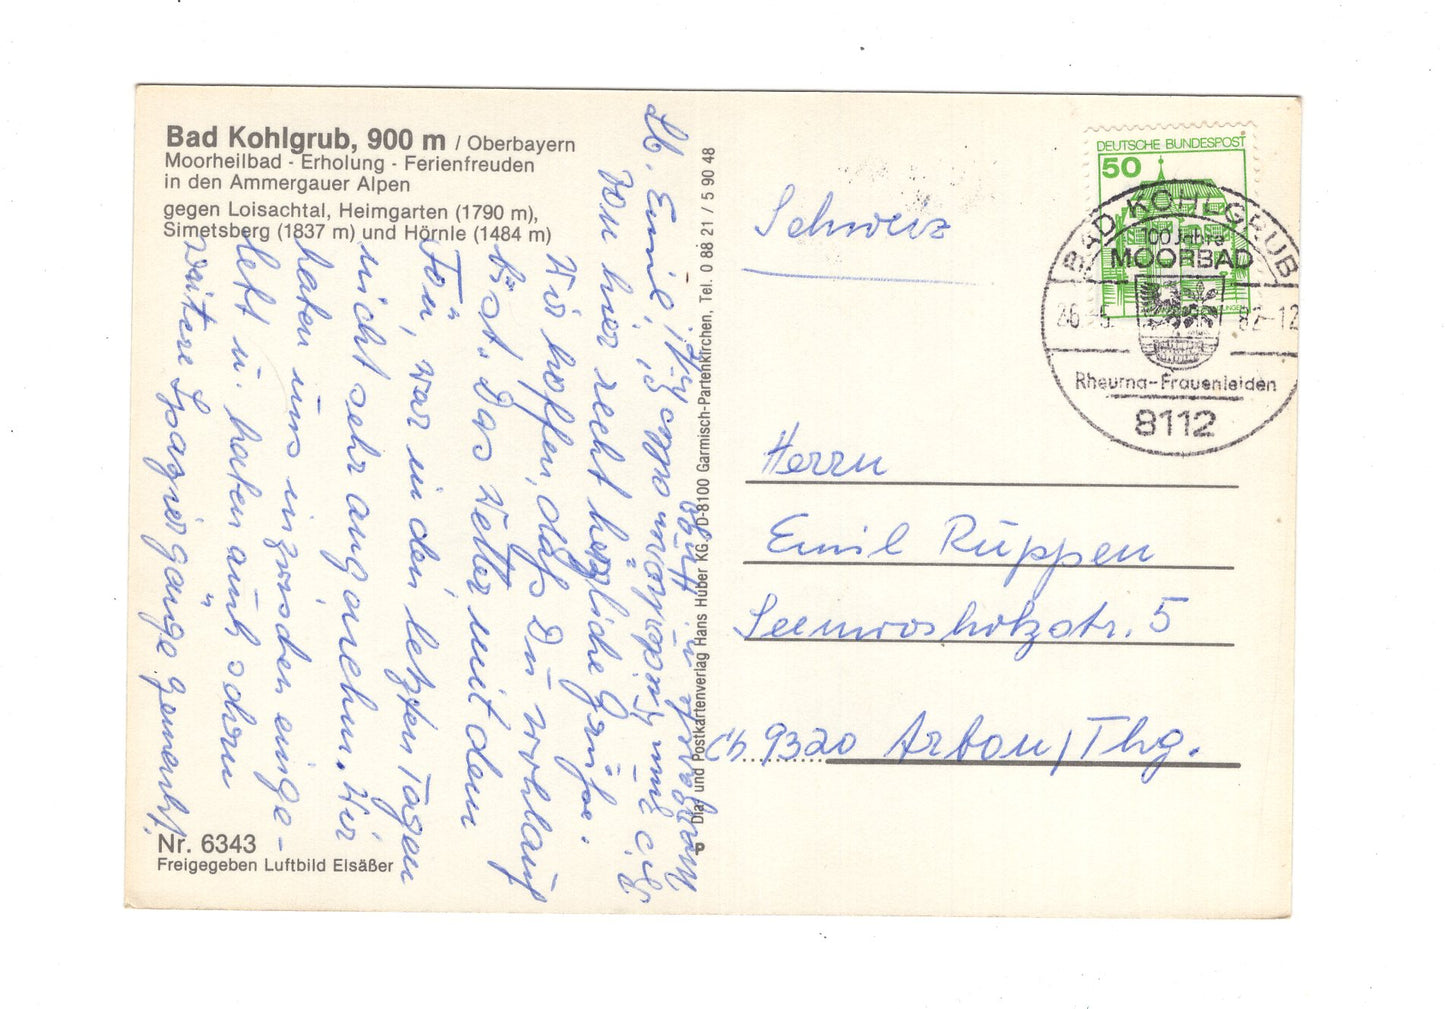 Bad Kohlgrub, 900 m / Oberbayern
Moorheilbad - Erholung - Ferienfreuden
in den Ammergauer Alpen
gegen Loisachtal, Heimgarten (1790 m),
Simetsberg (1837 m) und Hörnle (1484 m)
Lb. Emil,
von hier recht herzliche Grüße.
Wir hoffen, daß Du wohlauf
bist. Das Wetter mit dem
Fön, war in den letzten Tagen
nicht sehr angenehm. Wir
haben uns inzwischen einge-
lebt u. haben auch schon
weitere Spaziergänge gemacht.
Nr. 6343
Freigegeben Luftbild Elsäßer
Dia- und Postkartenverlag Hans Huber KG, D-8100 Garmisch-Partenkirchen, Tel. 0 88 21 / 5 90 48
DEUTSCHE BUNDESPOST
50
BAD KOHLGRUB
100 Jahre
MOORBAD
82-12
Rheuma-Frauenleiden
8112
Schweiz
Herrn
Emil Rüppen
Seemoosholzstr. 5
Ch 9320 Arbon/Thg.